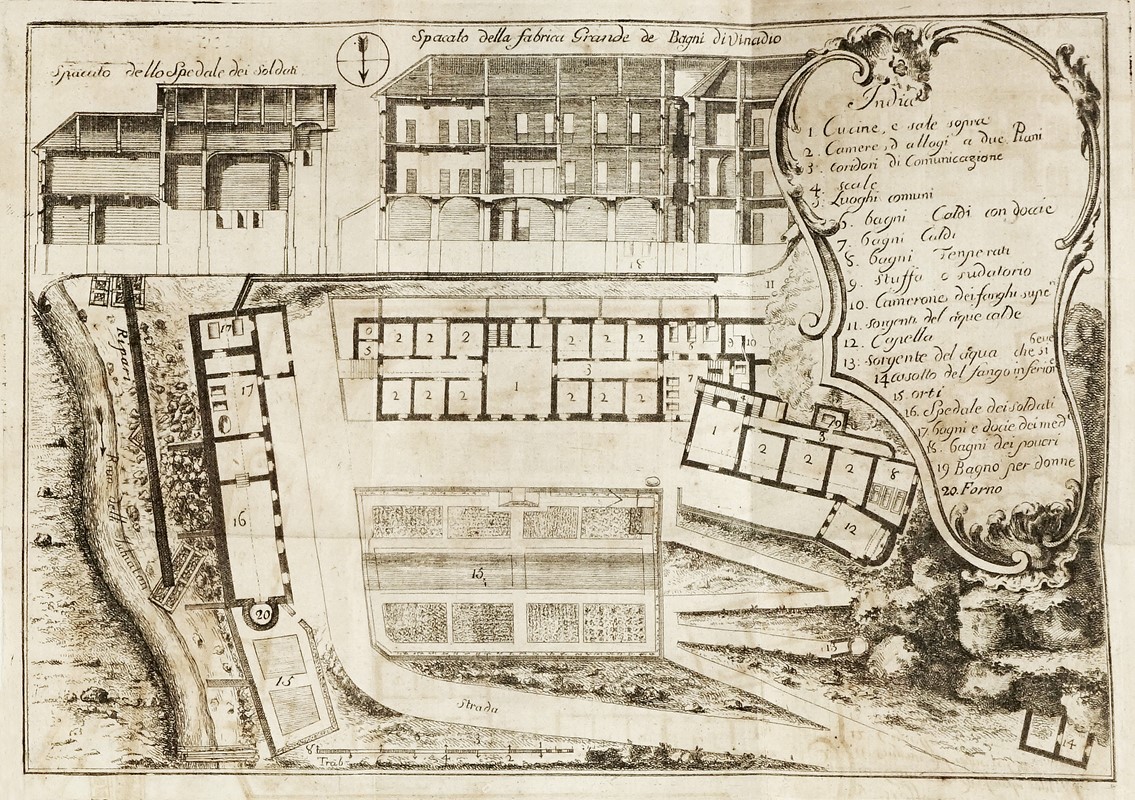 Spacato della fabrica Grande de Bagni di Vinadio
Spacato dello Spedale dei Soldati
Indice
1. Cucine, e sale sopra
2. Camere, d allogi a due Piani
3. coridori di Comunicazione
4. scale
5. Luoghi comuni
6. bagni Caldi con doccie
7. bagni Caldi
8. bagni Temperati
9. stuffa o sudatorio
10. Camerone dei fanghi supe.
11. sorgenti del aque calde
12. Capella
13. sorgente del aqua che si beve
14 casotto del fango inferior
15. orti
16. Spedale dei soldati
17 bagni e docie dei med
18. bagni dei poveri
19 Bagno per donne
20. Forno
18
11
17
6
5
2 2 2
2 2 2
9 10
3
1
7
2 2 2
2 2 2
17
4
19
3
1
2
2
2
8
12
16
15
20
15
13
14
Strada
Trab